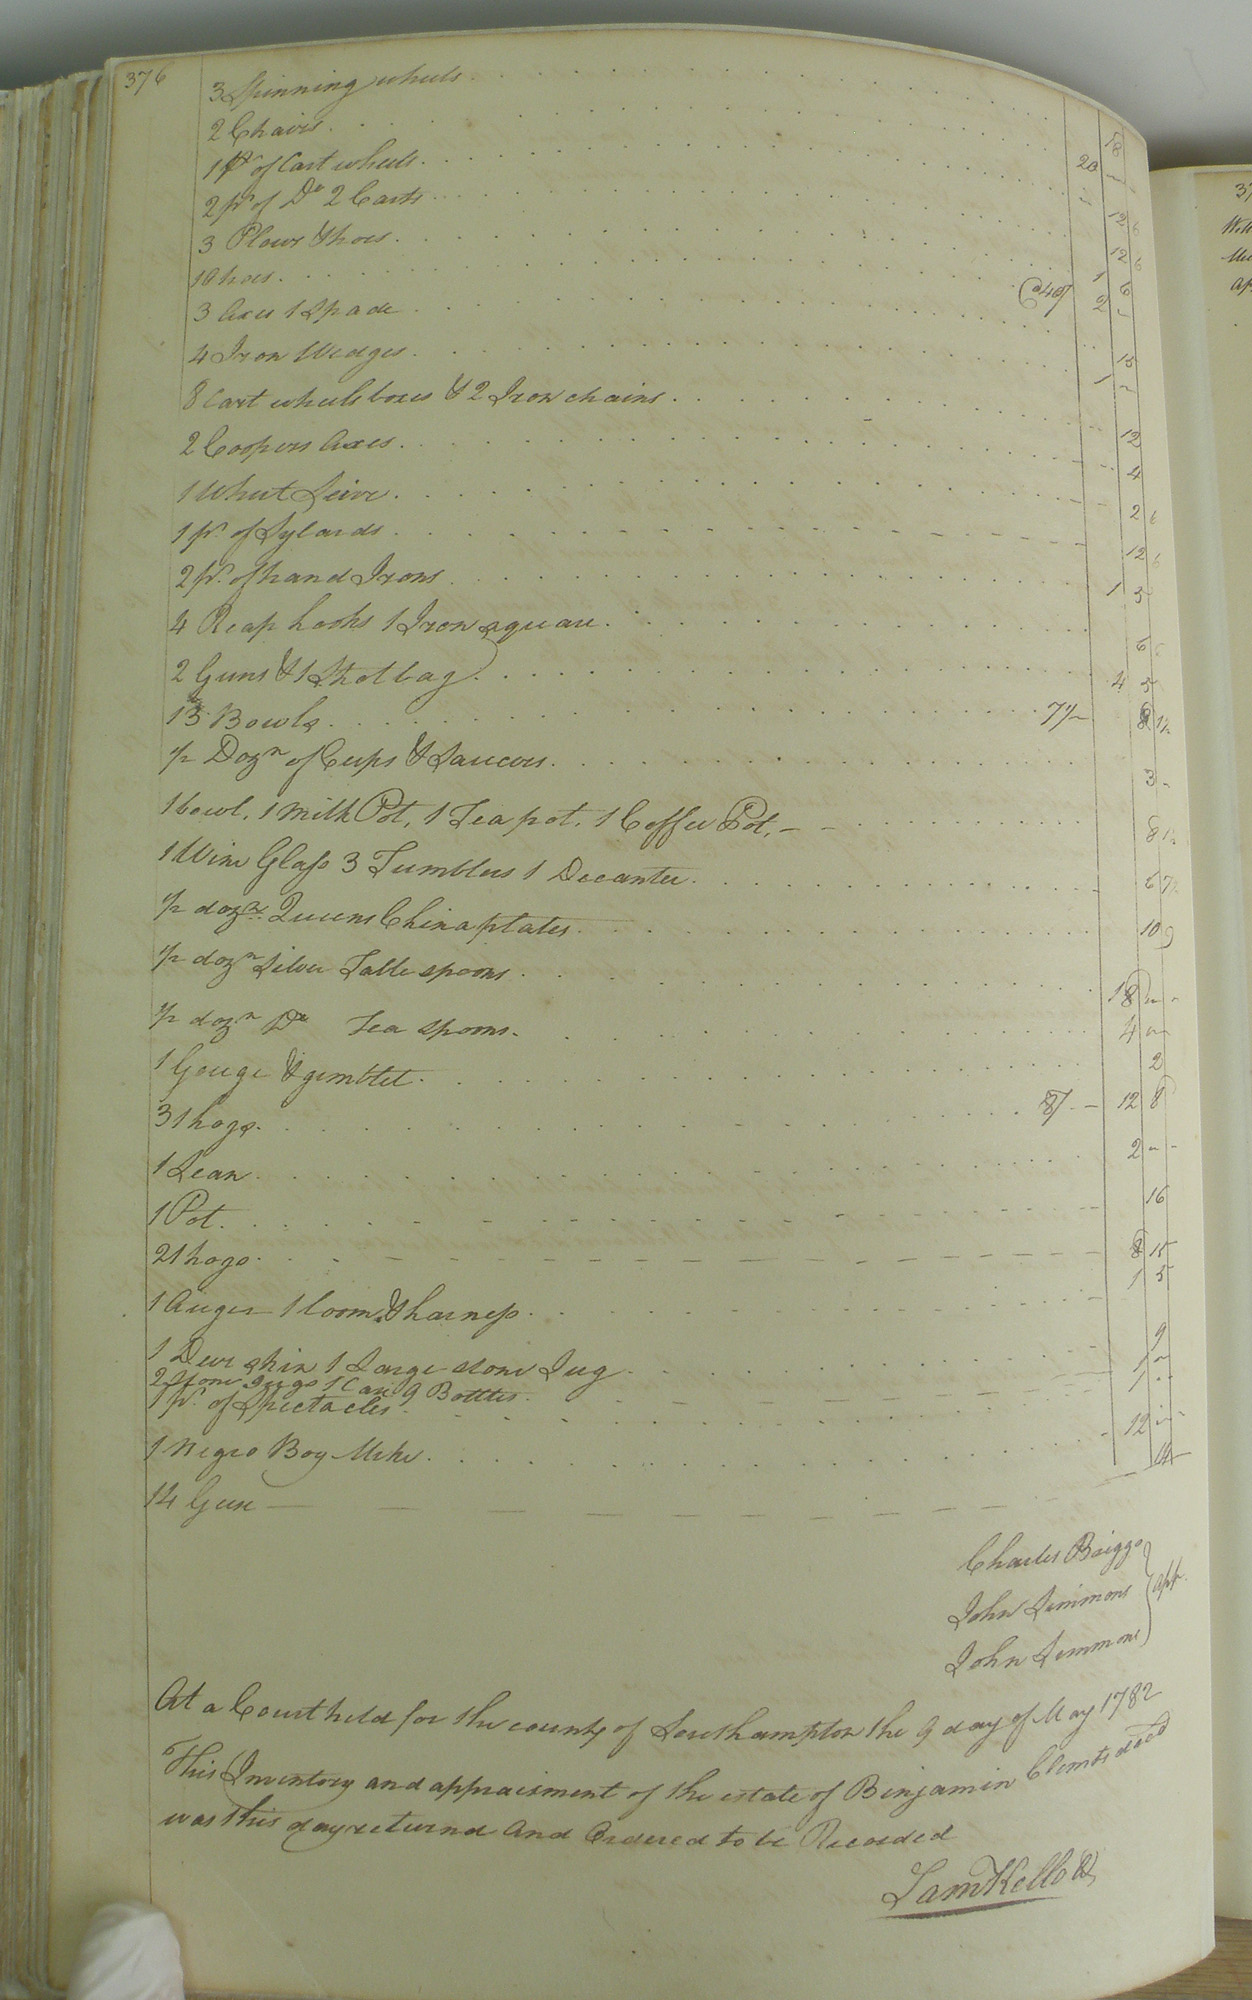 376
3 Spinning wheels 18
2 Chairs
1 pr of Cart wheels 20 —
2 pr of Do 2 Carts
3 Plows & hoes 12 6
10 hoes 12 6
3 Axes 1 Spade 1 6
4 Iron Wedges 15
8 Cart wheels boxes & 2 Iron chains 1 —
2 Coopers Axes 12
1 Wheat Seive 4
1 pr of Sylards 2 6
2 pr of hand Irons 12 6
4 Reap hooks 1 Iron square 1 5
2 Guns & 1 Shot bag 4 5
13 Bowls 7/
1/2 Dozn of Cups & Saucers 3 -
1 bowl, 1 Milk Pot, 1 Tea pot, 1 Coffee Pot, 8 1/2
1 Wine Glass 3 Tumblers 1 Decanter 6 7 1/2
1/2 dozn Queens China plates 10 9
1/2 dozn Silver Table spoons 18 - -
1/2 dozn Do Tea spoons 4 -
1 Gouge & gimblet 2
31 hogs 8/ - 12 8
1 Sean 2 - -
1 Pot 16
21 hogs 8 15
1 Auger 1 loom & harness 1 5
1 Deer skin 1 Large stone Jug 9
2 Stone Jugs 1 Case 9 Bottles 1 -
1 pr of Spectacles 1 -
1 Negro Boy Mike 12 - -
14 Geese 14
Charles Briggs
John Simmons } apr.
John Simmons
At a Court held for the county of Southampton the 9 day of May 1782
This Inventory and appraisment of the estate of Benjamin Clements decd
was this day returnd and Ordered to be Recorded
Sam Kello